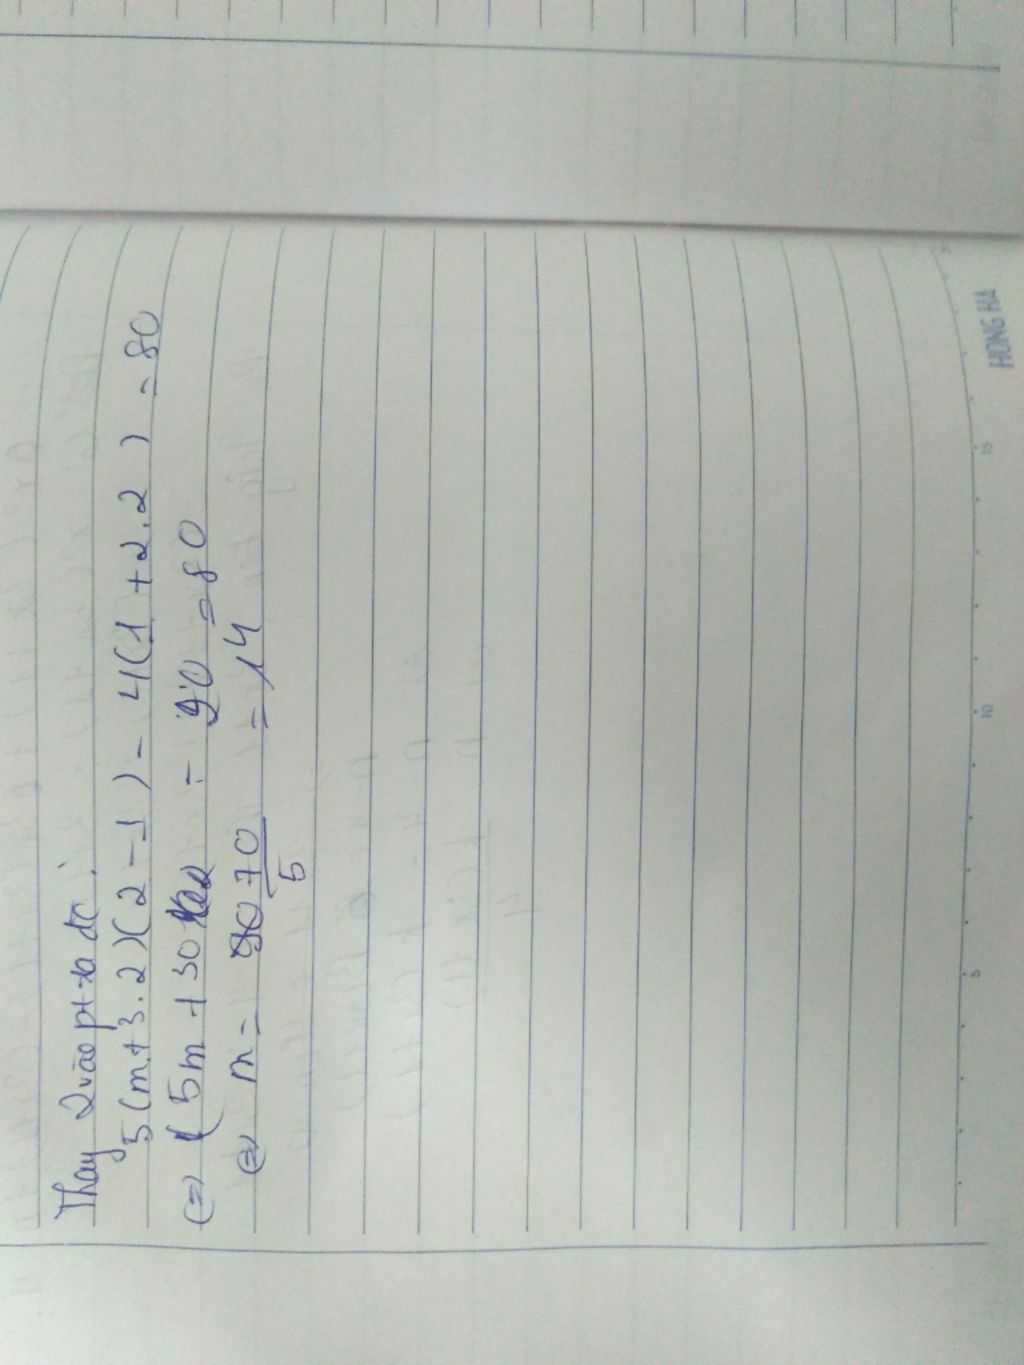 Thay 2 vào pt ta đc:
5(m+3.2)(2-1) - 4(1+2.2) = 80
(=) 5m + 30 - 20 = 80
(=) m = 70/5 = 14
HONG HA
5
10
15